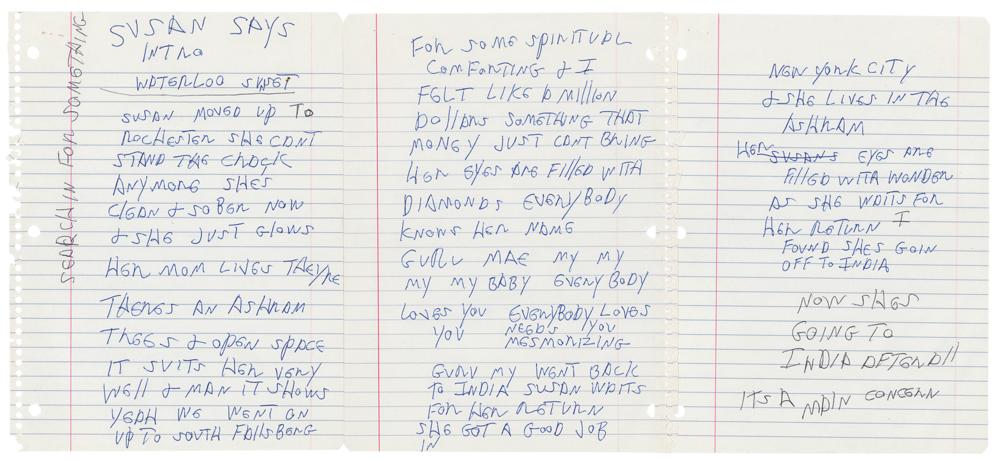 SEARCHIN FOR SOMETHING
SUSAN SAYS
INTRO
WATERLOO SUNSET
SUSAN MOVED UP TO
ROCHESTER SHE CANT
STAND THE CRACK
ANYMORE SHES
CLEAN & SOBER NOW
& SHE JUST GLOWS
HER MOM LIVES THEY/RE
THERES AN ASHRAM
TREES & OPEN SPACE
IT SUITS HER VERY
WELL & MAN IT SHOWS
YEAH WE WENT ON
UP TO SOUTH FALLSBERG
FOR SOME SPIRITUAL
COMFORTING & I
FELT LIKE A MILLION
DOLLARS SOMETHING THAT
MONEY JUST CANT BRING
HER EYES ARE FILLED WITH
DIAMONDS EVERYBODY
KNOWS HER NAME
GURU MAE MY MY
MY MY BABY EVERYBODY
LOVES YOU EVERYBODY LOVES
YOU NEEDS YOU
MESMORIZING
GURU MY WENT BACK
TO INDIA SUSAN WAITS
FOR HER RETURN
SHE GOT A GOOD JOB
IN
NEW YORK CITY
& SHE LIVES IN THE
ASHRAM
HER SUSANS EYES ARE
FILLED WITH WONDER
AS SHE WAITS FOR
HER RETURN I
FOUND SHES GOIN
OFF TO INDIA
NOW SHES
GOING TO
INDIA AFTERALL
ITS A MAIN CONCERN